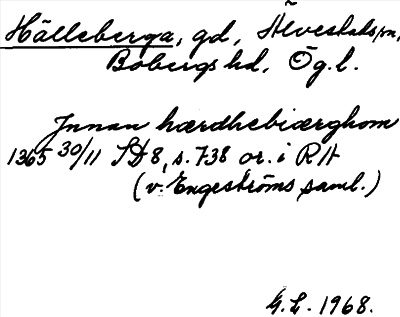 Hälleberga, gd, Älvestads sn,
Bobergs hd, Ög. l.
Innan hærdhebiærghom
1365 30/11 SD 8, s. 738 or. i RA
(v. Engeströms saml.)
G.L. 1968.